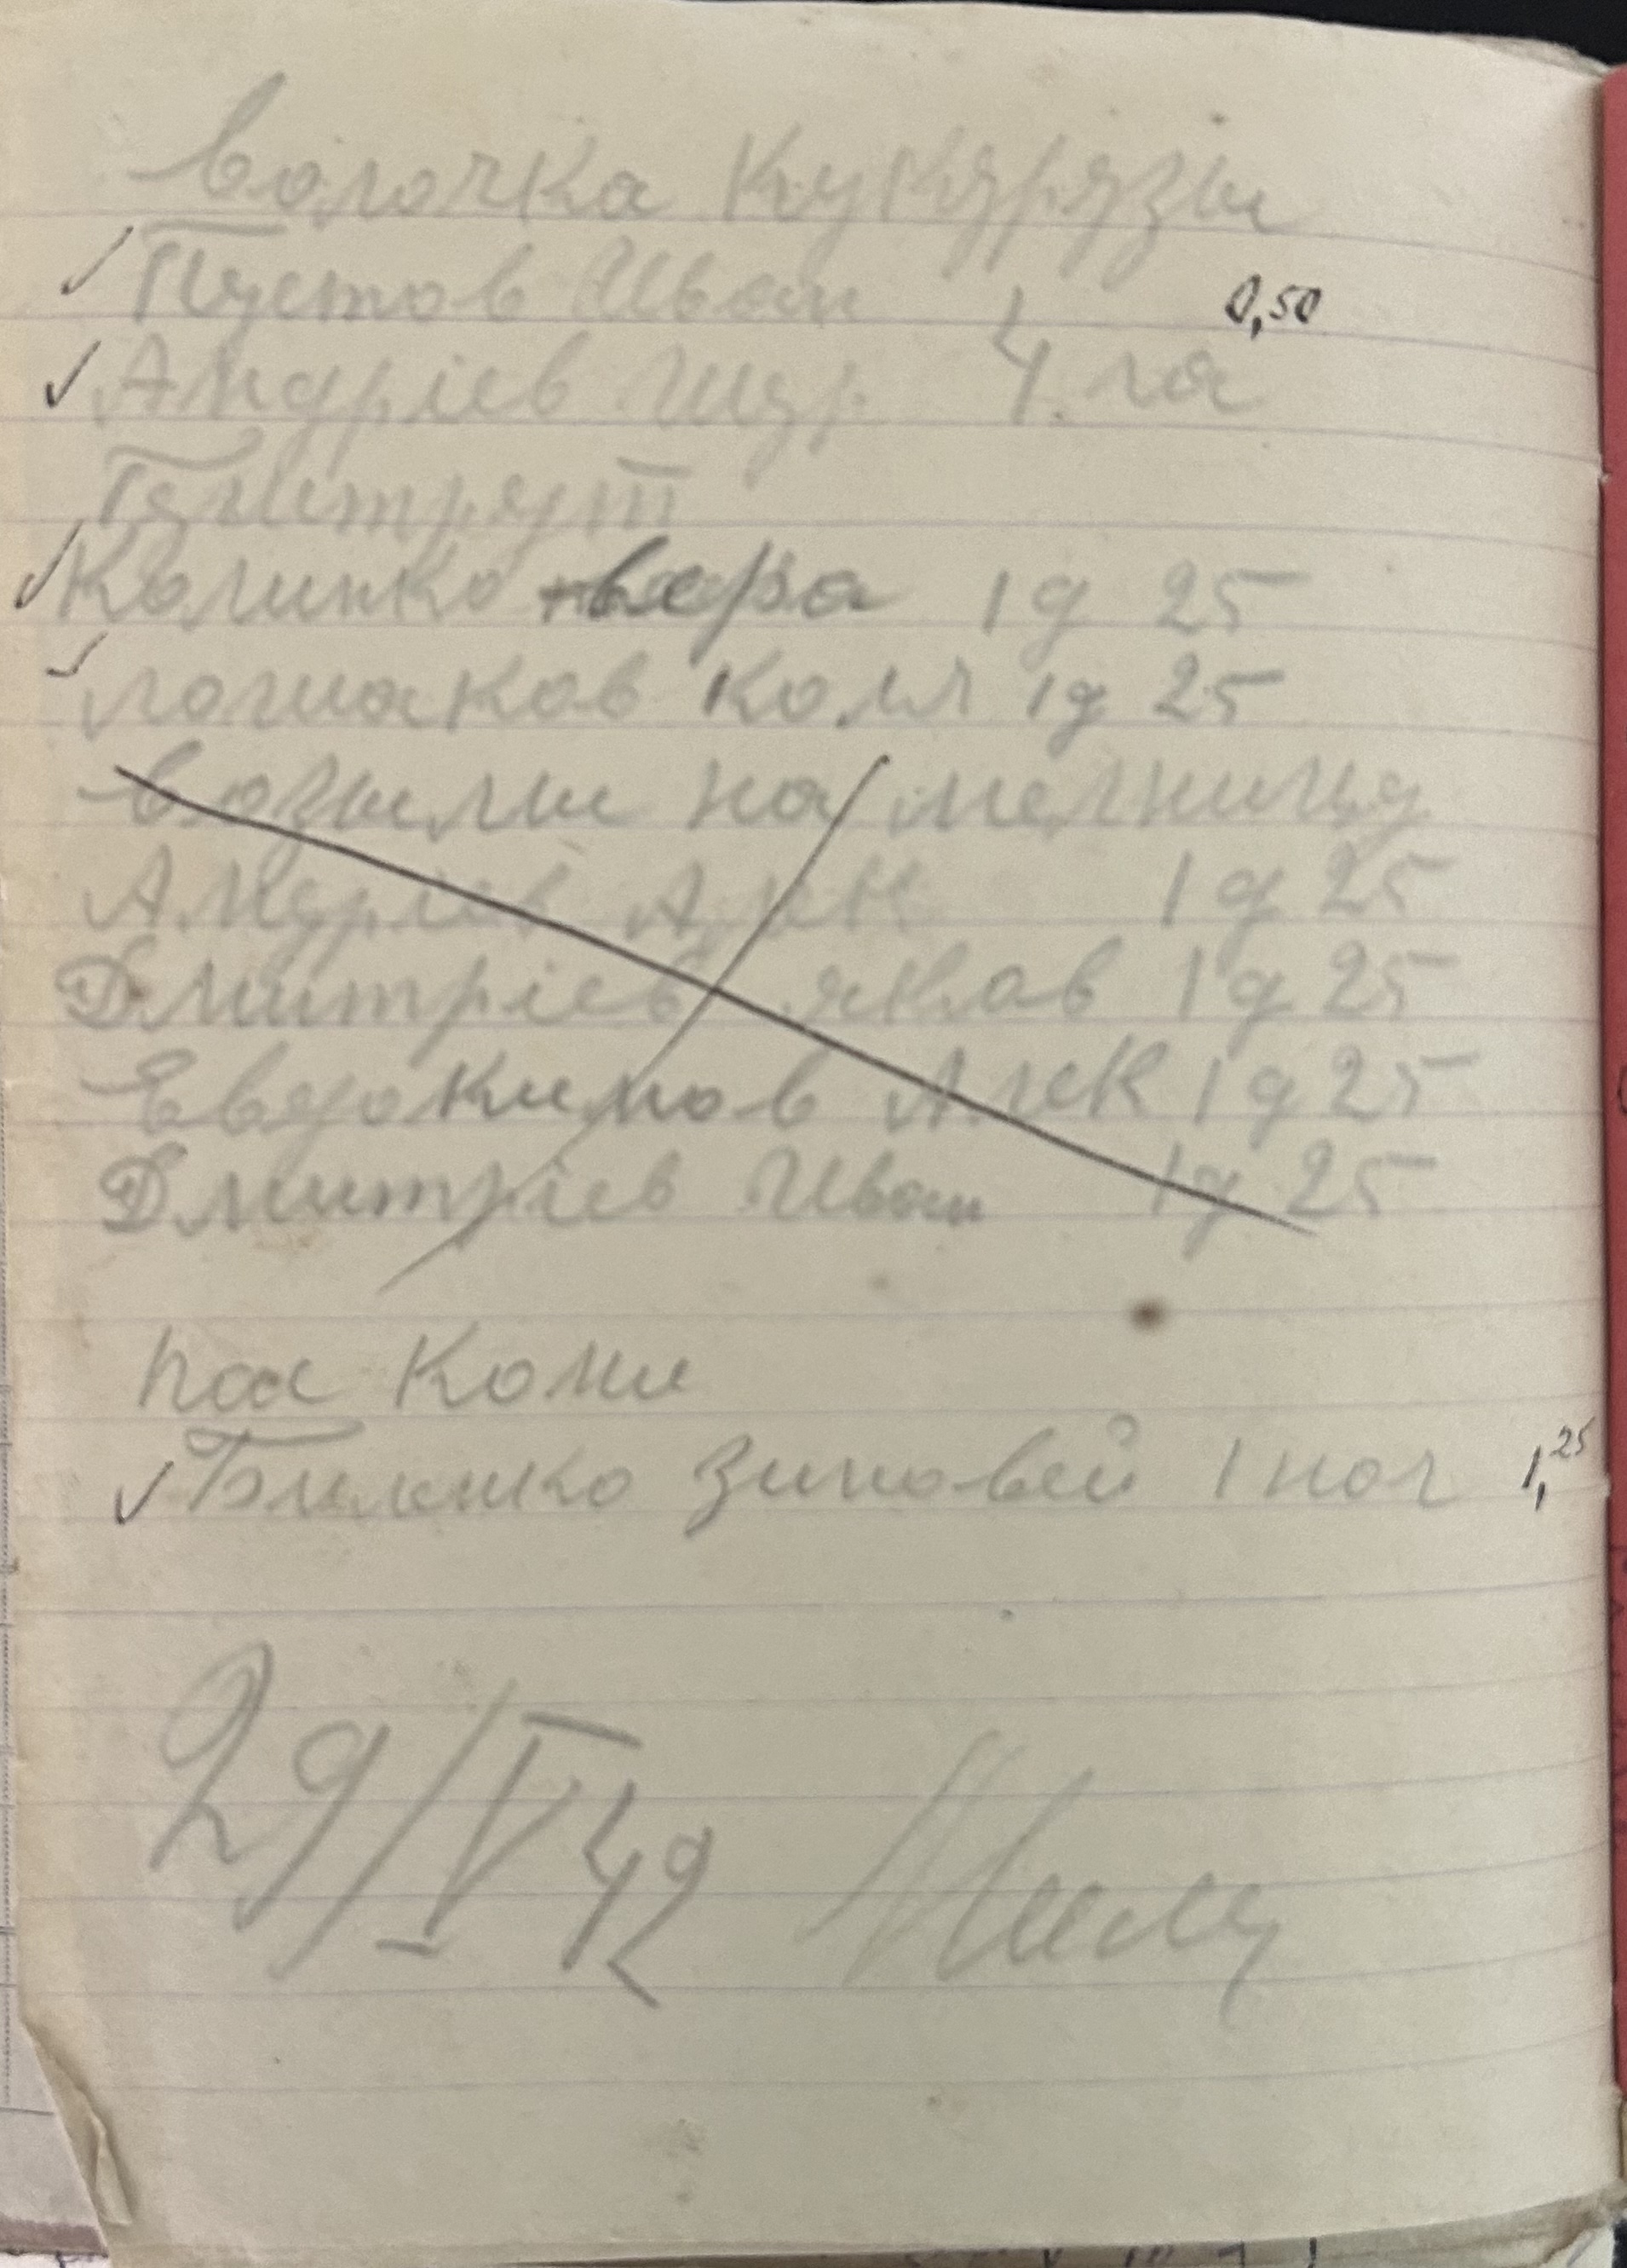 волочка кукурузы
Пустов Иван 0,50
Андріев Шур 4 га
Гулитрут
Калинко вера 1 д 25
логиаков коля 1 д 25
возылы на мелницу
Андріев Алек 1 д 25
Дмитріев яков 1 д 25
Евдокимов Алек 1 д 25
Дмитріев Иван 1 д 25
пас кони
Билинко Зиновей 1 ноч 1,25
29/V 42